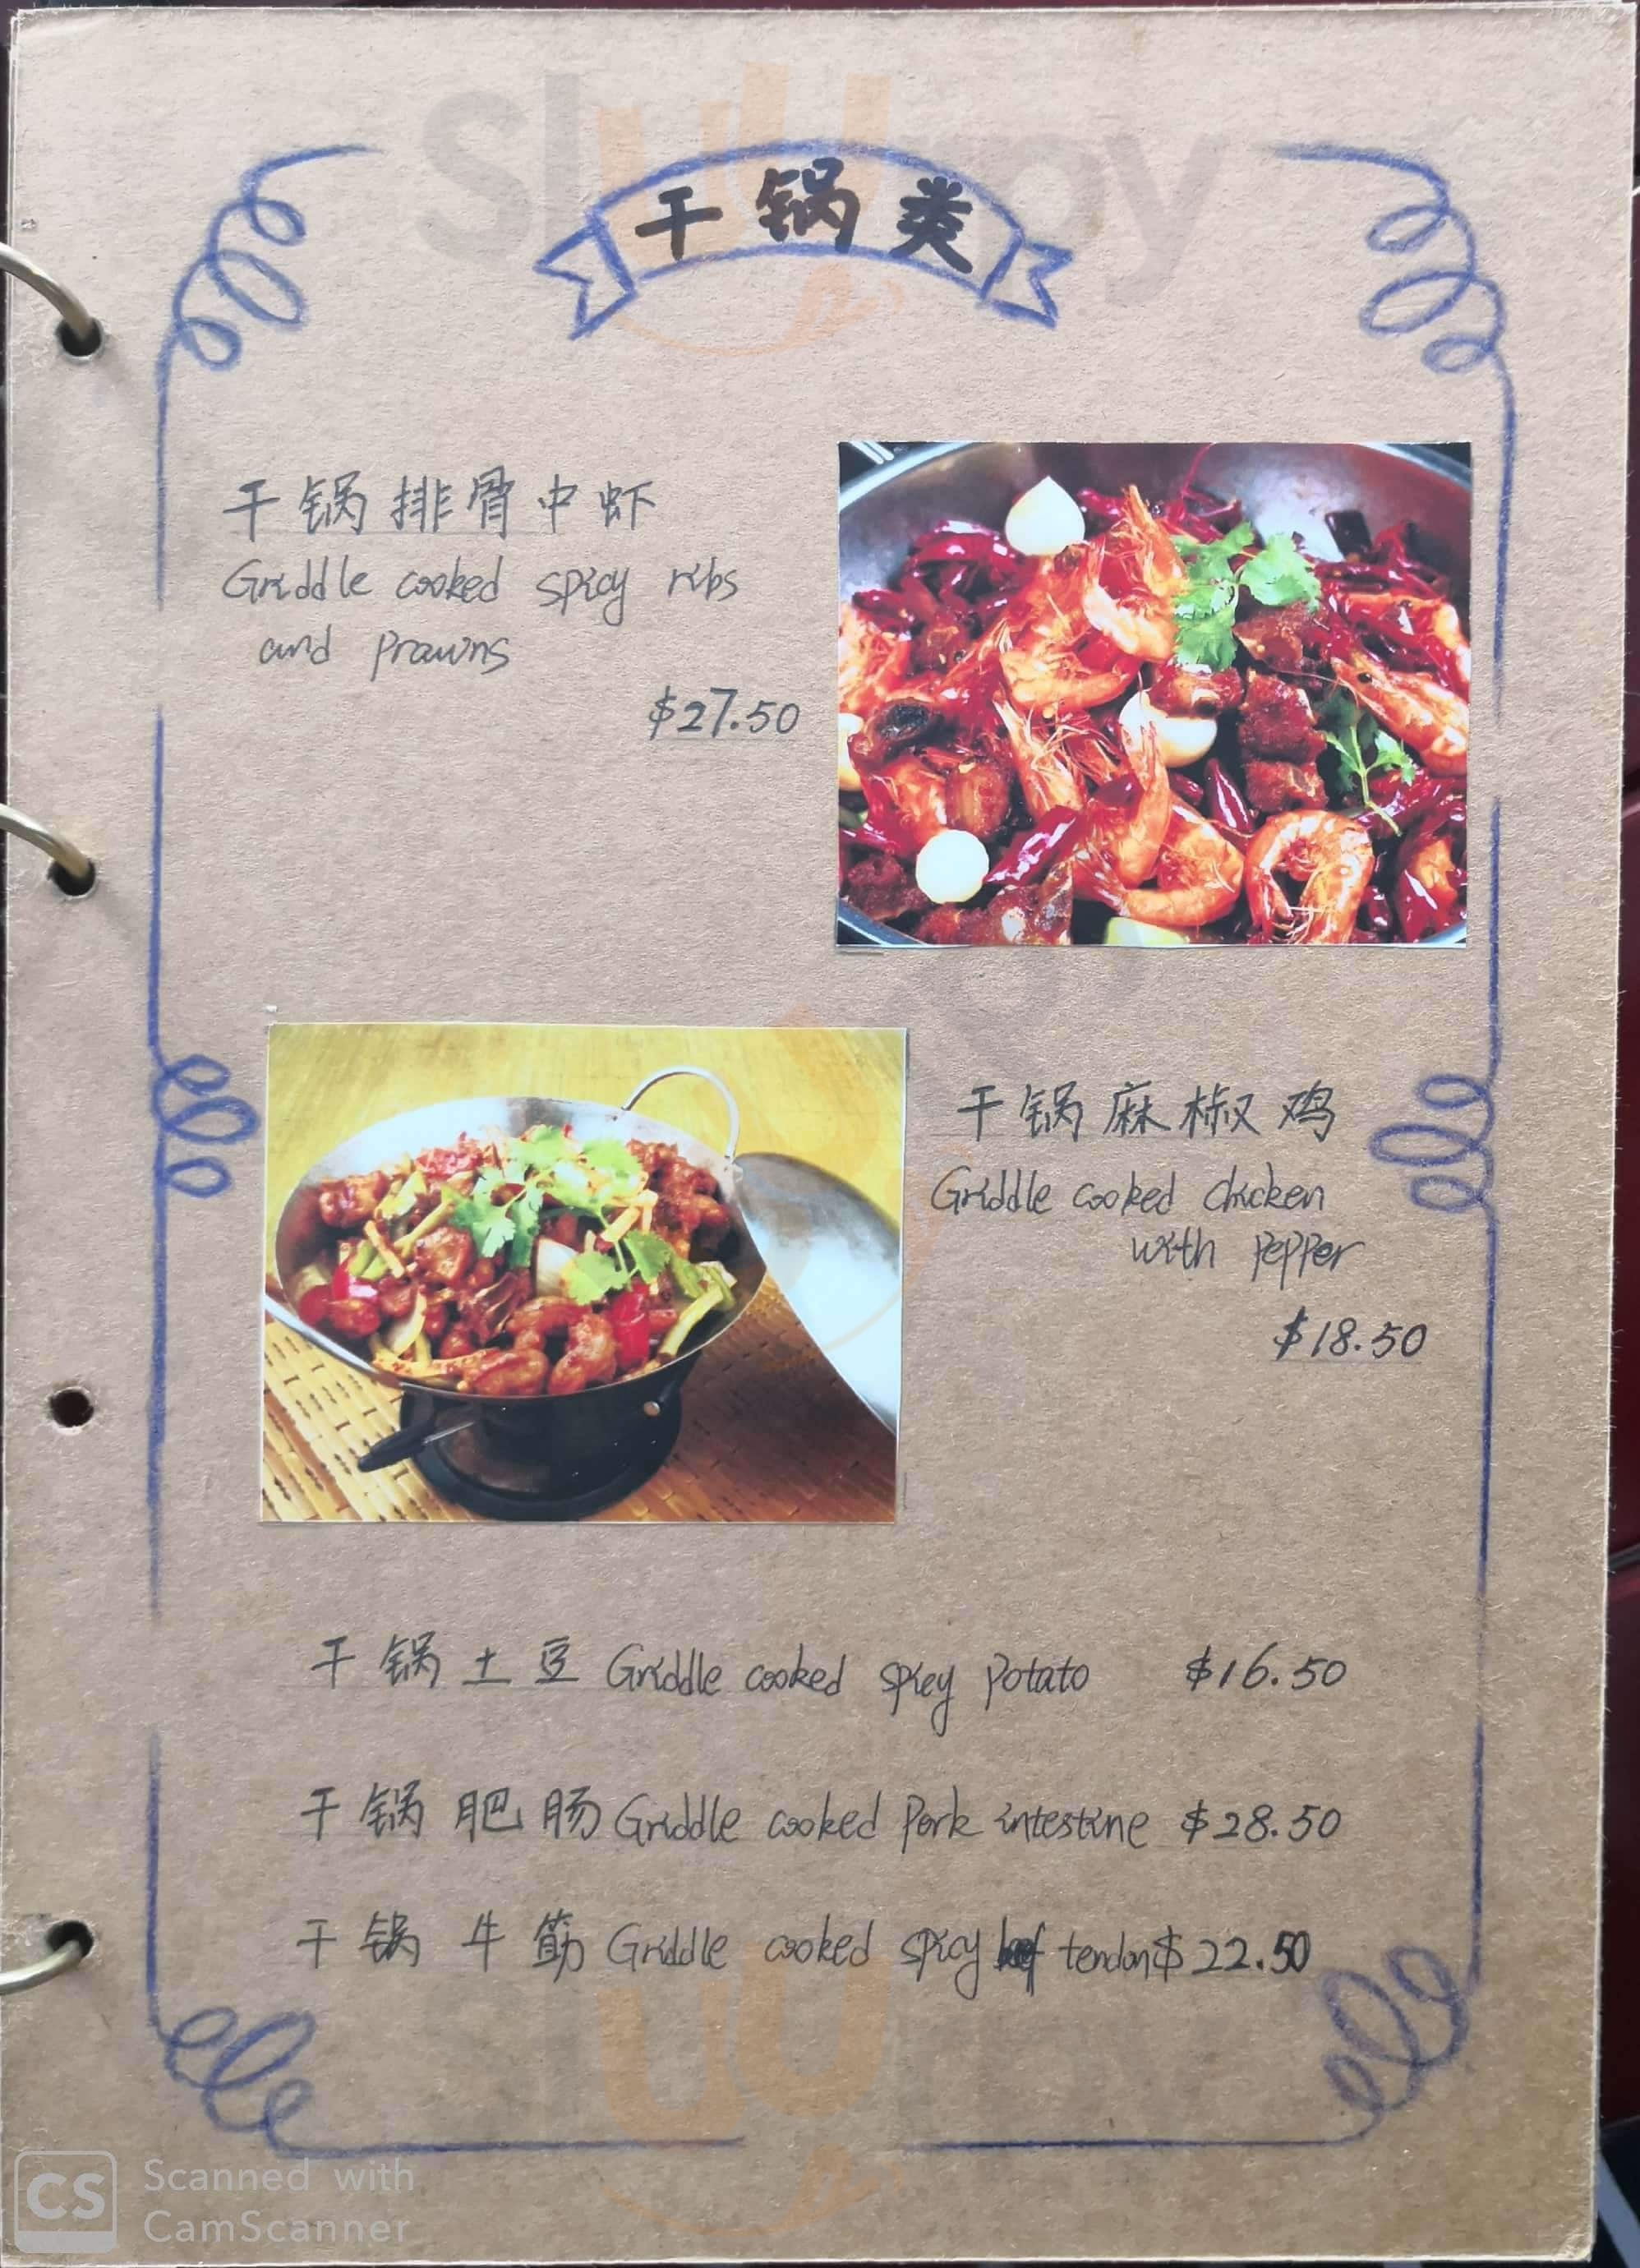 干锅类
干锅排骨中虾
Griddle cooked spicy ribs
and prawns
$27.50
干锅麻椒鸡
Griddle cooked chicken
with pepper
$18.50
干锅土豆 Griddle cooked spicy potato $16.50
干锅肥肠 Griddle cooked Pork intestine $28.50
干锅牛筋 Griddle cooked spicy beef tendon $22.50
CS Scanned with
CamScanner